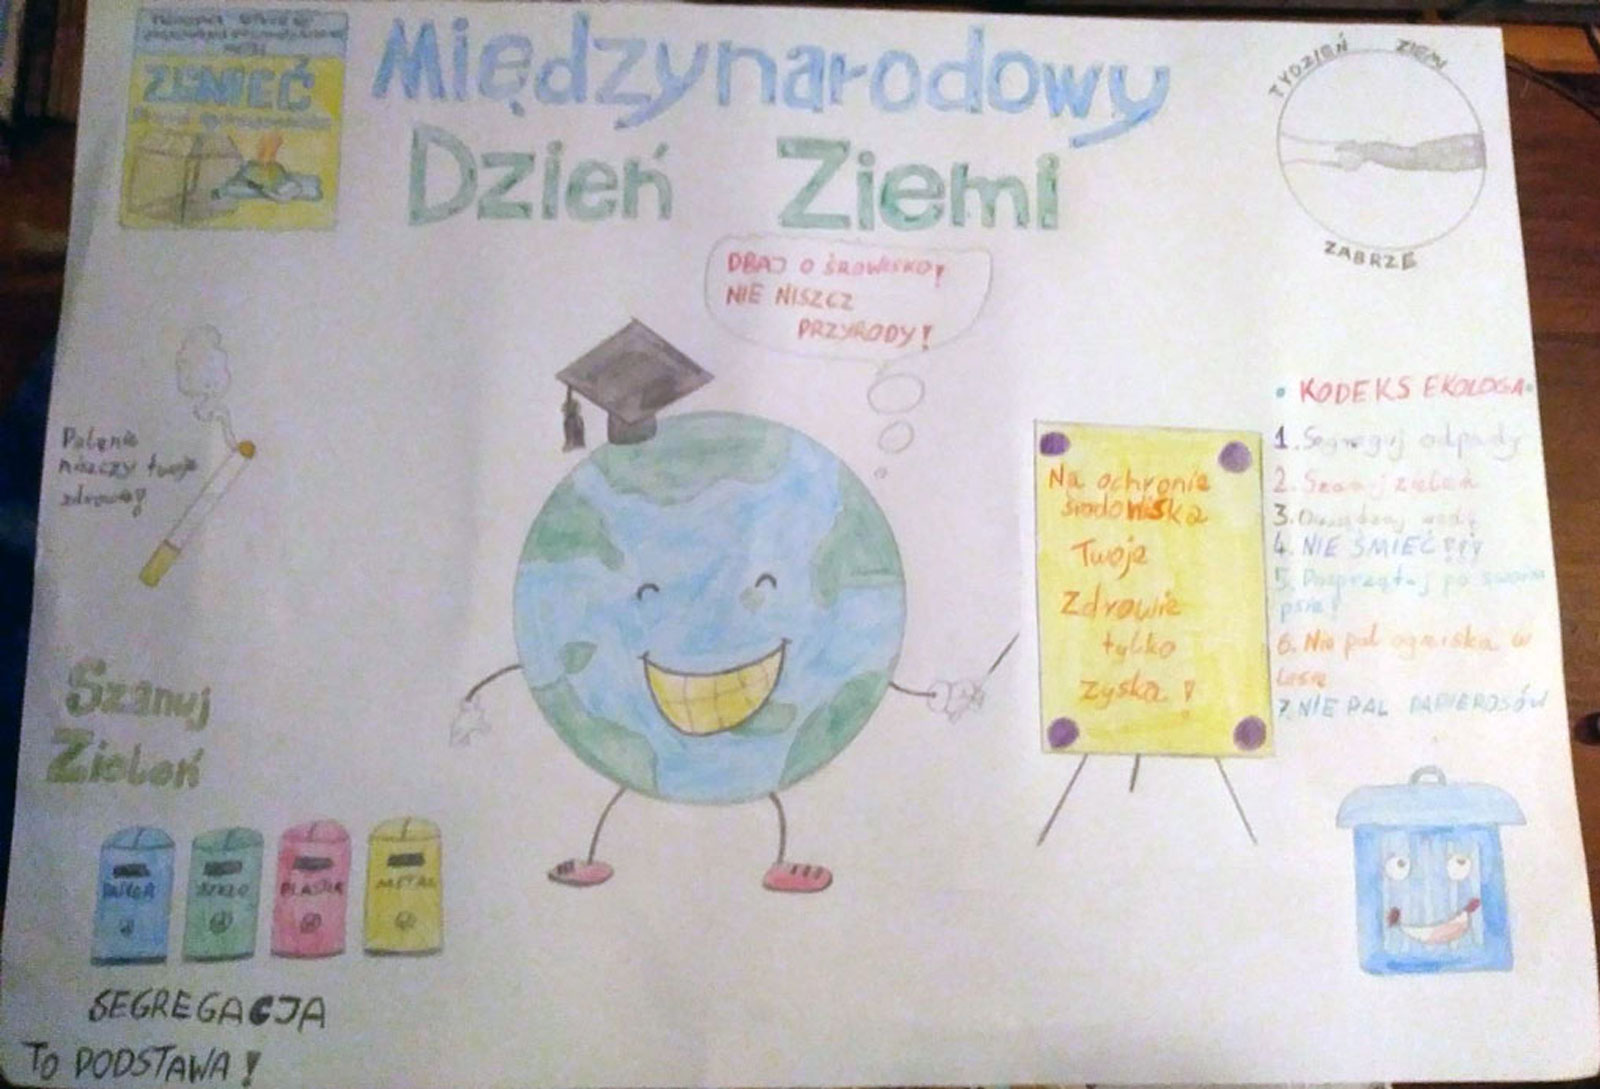 Międzynarodowy
Dzień Ziemi
TYDZIEŃ ZIEMI
ZABRZE
DBAJ O ŚROWISKO!
NIE NISZCZ
PRZYRODY!
Palenie
niszczy twoje
zdrowie!
Na ochronie
środowiska
Twoje
Zdrowie
tylko
zyska!
• KODEKS EKOLOGA•
1. Segreguj odpady
2. Szanuj zieleń
3. wodę
4. NIE ŚMIEĆ!!!
5. Posprzątaj po swoim
psie!
6. Nie pal ogniska w
lesie
7. NIE PAL PAPIEROSÓW
Szanuj
Zieleń
PAPIER
SZKŁO
PLASTIK
METAL
SEGREGACJA
TO PODSTAWA!